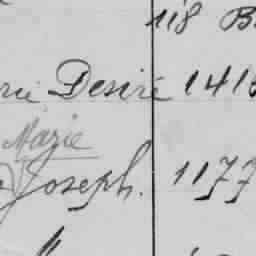 118 B
rie Desiré 141
Mazie
Joseph. 1177